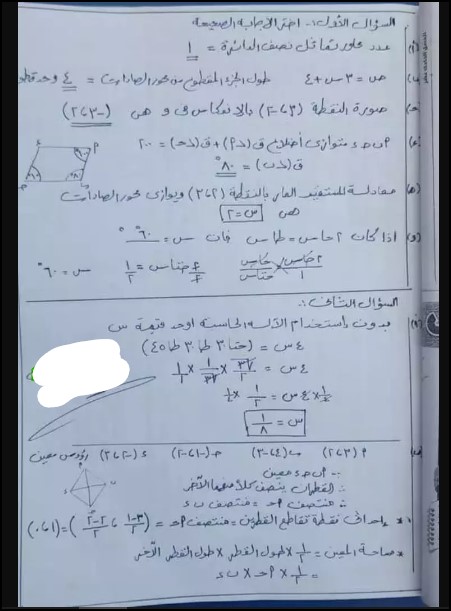 السؤال الأول :- اختر الإجابة الصحيحة
(أ) عدد محاور تماثل نصف الدائرة = ١
(ب) ص = ٣س + ٤ طول الجزء المقطوع من محور الصادات = ٤ وحدة طول
(ج) صورة النقطة (٣،-٢) بالانعكاس في و هي (-٣،٢)
(د) أ ب ج د متوازى أضلاع ق(أ) + ق(ج) = ٢٠٠
ق(ب) = ٨٠°
(ه) معادلة المستقيم المار بالنقطة (٢،٣) ويوازى محور الصادات
هى س = ٢
(و) إذا كان ٢ حاس = طاس فإن س = ٦٠°
٢حاس/١ = حاس/حتاس حتاس = ١/٢ س = ٦٠°
السؤال الثانى :-
(أ) بدون استخدام الآلة الحاسبة أوجد قيمة س
٤س = (حتا٣٠ طا٣٠ طا٤٥)
٤س = √٣/٢ × ١/√٣ × ١
١/٤ × ٤س = ١/٢ × ١/٤
س = ١/٨
أ(٣،٢) ب(٤،-٣) ج(-١،-٢) د(-٢،٣) رؤوس معين
∵ أ ب ج د معين
∴ القطران ينصف كلا منهما الآخر
∴ منتصف أ ج = منتصف ب د
* إحداثى نقطة تقاطع القطرين = منتصف أ ج = (٣-١/٢ ، ٢-٢/٢) = (١،٠)
* مساحة المعين = ١/٢ × طول القطر × طول القطر الآخر
= ١/٢ × أ ج × ب د